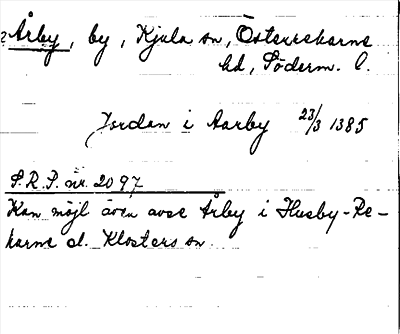 ? Årby, by, Kjula sn, Österrekarne
hd, Söderm. l.
Jordan i Aarby 23/3 1385
S.R.P. nr. 2097
Kan möjl även avse Årby i Husby-Re-
karne el. Klosters sn.